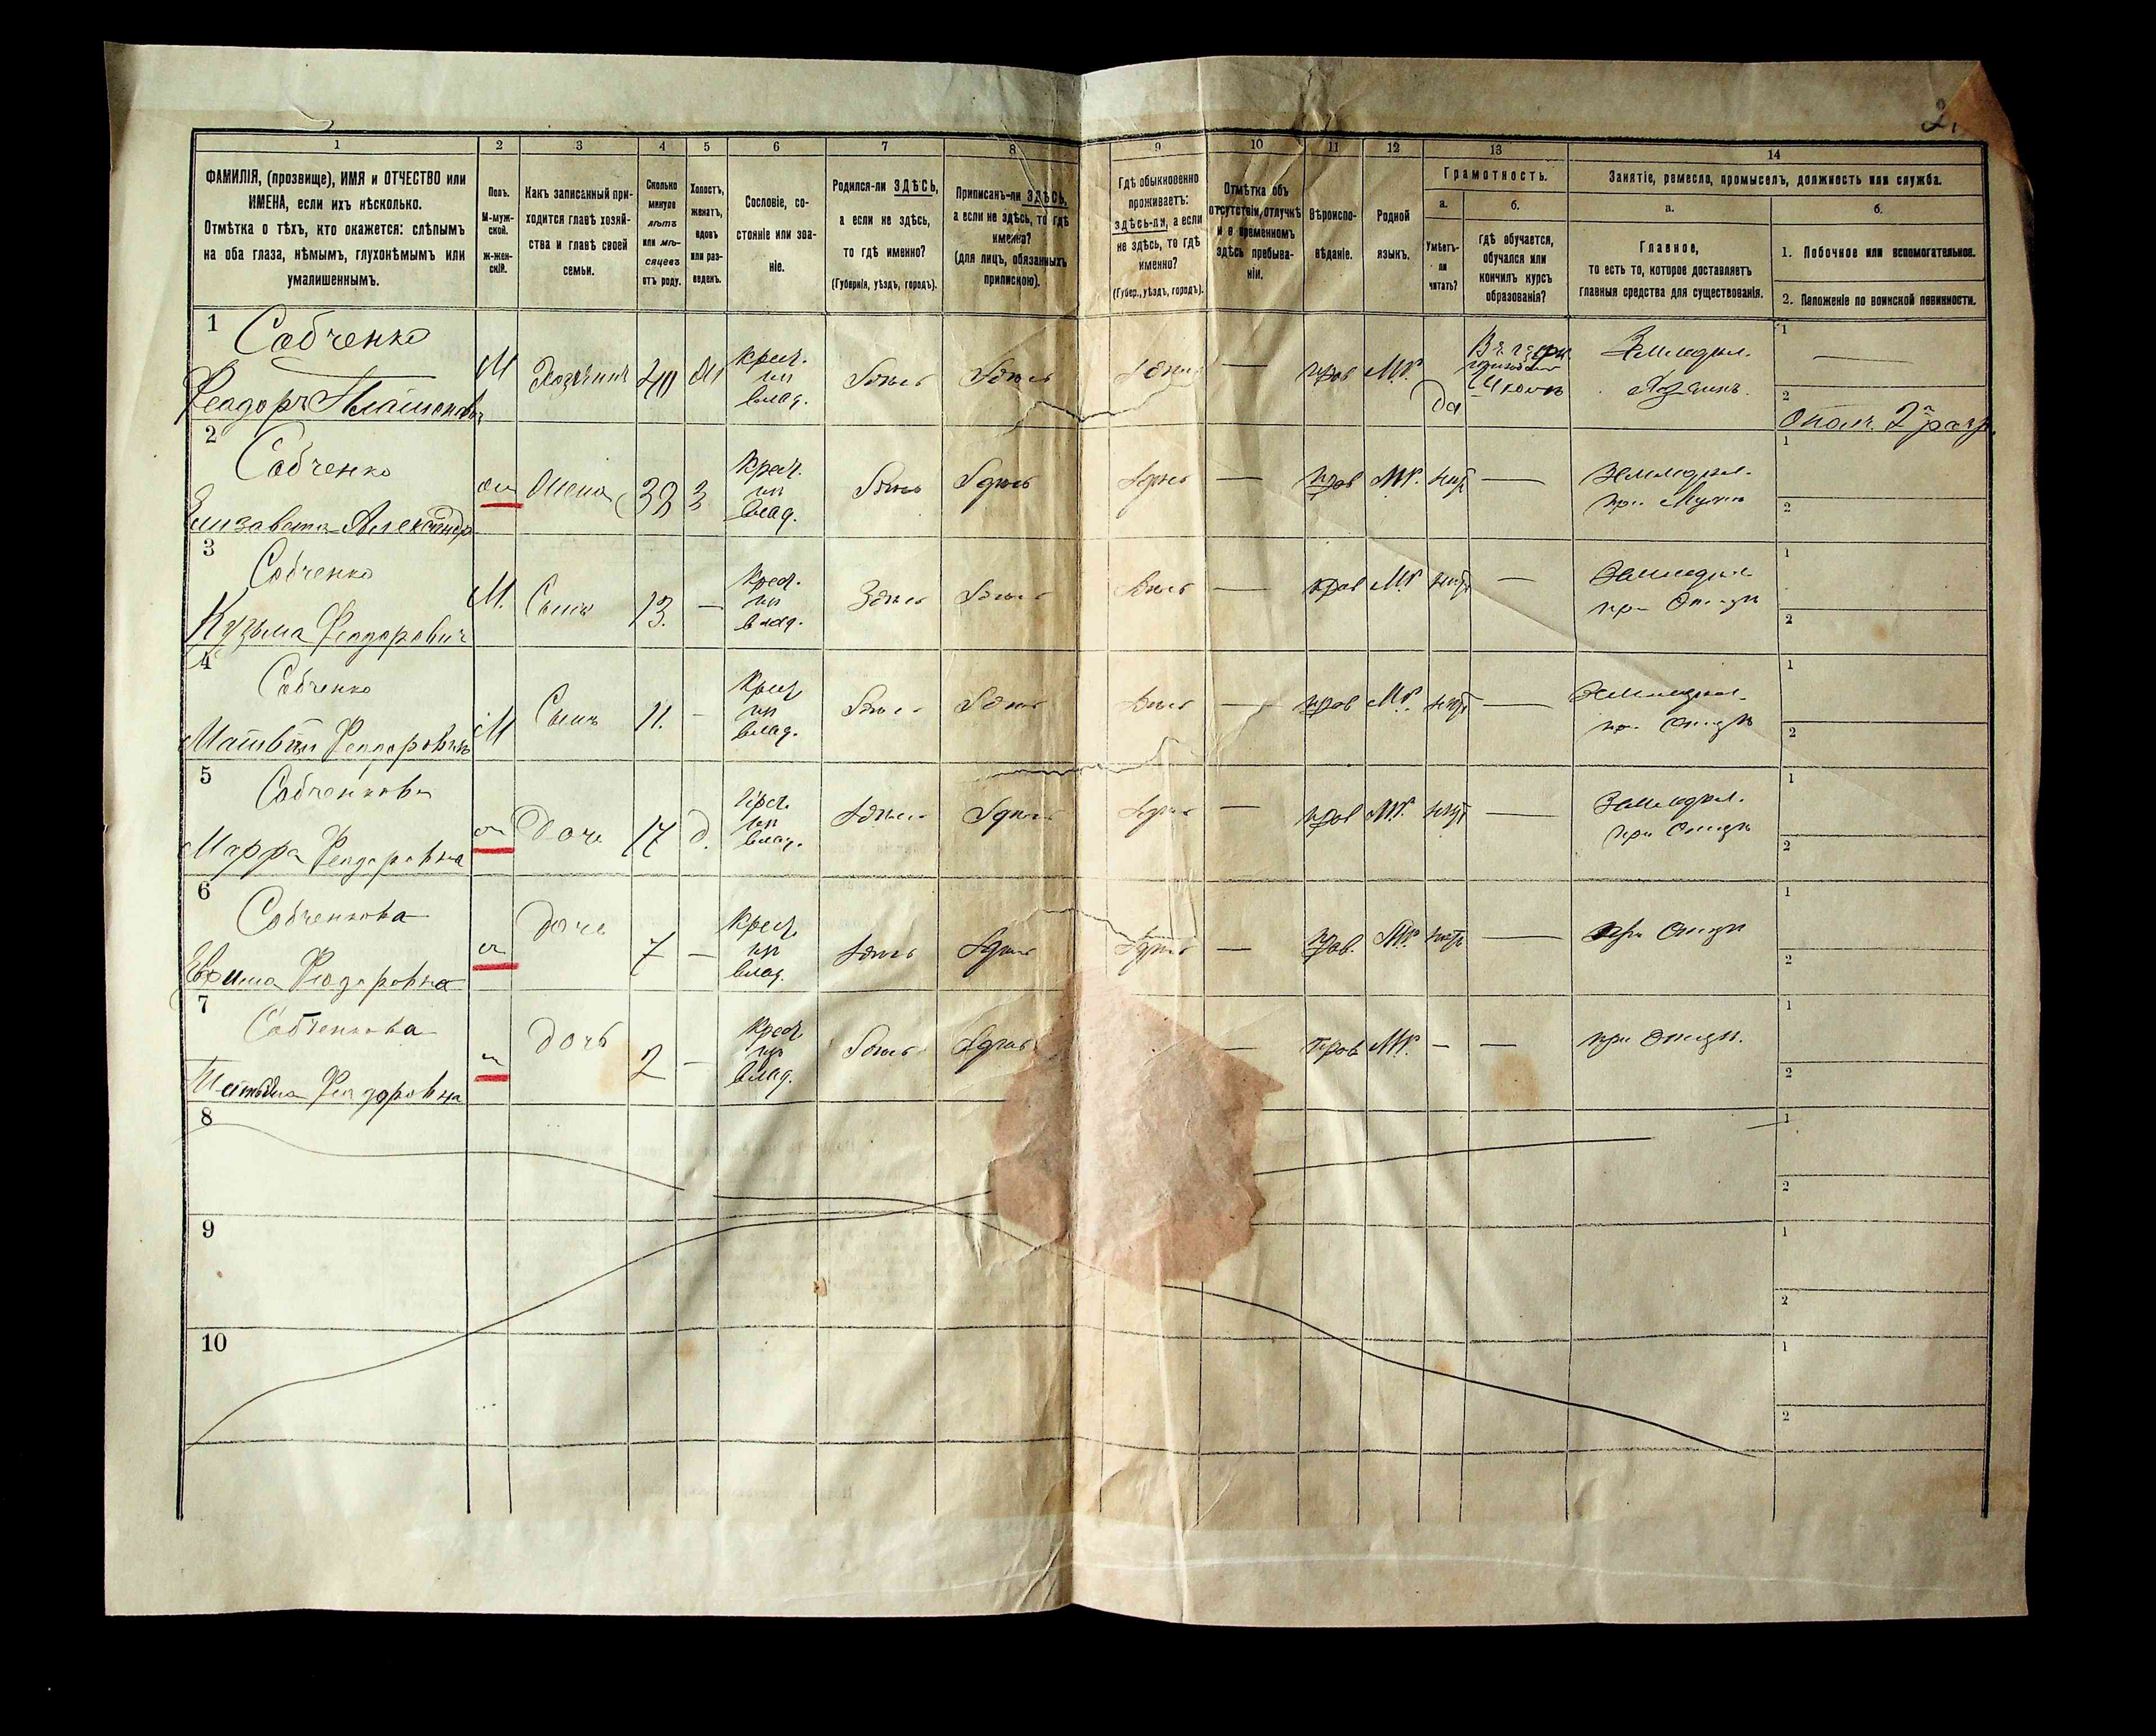 2.
1 2 3 4 5 6 7 8 9 10 11 12 13 14
ФАМИЛІЯ, (прозвище), ИМЯ и ОТЧЕСТВО или
ИМЕНА, если ихъ нѣсколько.
Отмѣтка о тѣхъ, кто окажется: слѣпымъ
на оба глаза, нѣмымъ, глухонѣмымъ или
умалишеннымъ.
Полъ.
М-муж-
ской.
Ж-жен-
скій.
Какъ записанный при-
ходится главѣ хозяй-
ства и главѣ своей
семьи.
Сколько
минуло
лѣтъ
или мѣ-
сяцевъ
отъ роду.
Холостъ,
женатъ,
вдовъ
или раз-
веденъ.
Сословіе, со-
стояніе или зва-
ніе.
Родился-ли ЗДѢСЬ,
а если не здѣсь,
то гдѣ именно?
(Губернія, уѣздъ, городъ).
Приписанъ-ли ЗДѢСЬ,
а если не здѣсь, то гдѣ
именно?
(для лицъ, обязанныхъ
припискою).
Гдѣ обыкновенно
проживаетъ:
здѣсь-ли, а если
не здѣсь, то гдѣ
именно?
(Губер., уѣздъ, городъ).
Отмѣтка объ
отсутствіи, отлучкѣ
и о временномъ
здѣсь пребыва-
ніи.
Вѣроиспо-
вѣданіе.
Родной
языкъ.
Грамотность.
а.
Умѣетъ-
ли
читать?
б.
гдѣ обучается,
обучался или
кончилъ курсъ
образованія?
Занятіе, ремесло, промыселъ, должность или служба.
а.
Главное,
то есть то, которое доставляетъ
главныя средства для существованія.
б.
1. Побочное или вспомогательное.
2. Положеніе по воинской повинности.
1
Собченко
Феодоръ
М
Хозяинъ
Ж
крест.
из
влад.
Здѣсь
Здѣсь
Здѣсь
прав
Мр.
Да
Земледѣл.
Хозяинъ.
1
2
Ополч. 2 разр.
2
Собченко
Елизавета Александр
ж
Жена
З
крест.
из
влад.
Здѣсь
Здѣсь
Здѣсь
—
прав
Мр.
нѣтъ
—
Земледѣл.
при Мужѣ
1
2
3
Собченко
Кузьма Феодорович
М.
Сынъ
13.
—
крест.
из
влад.
Здѣсь
Здѣсь
Здѣсь
—
прав
Мр.
нѣтъ
—
Земледѣл.
при Отцѣ
1
2
4
Собченко
Матвѣй Феодоровичъ
М
Сынъ
11.
-
крест.
из
влад.
Здѣсь
Здѣсь
Здѣсь
—
прав
Мр.
нѣтъ
—
Земледѣл.
при Отцѣ
1
2
5
Собченкова
Марфа Феодоровна
ж
Дочь
17
д.
крест.
из
влад.
Здѣсь
Здѣсь
Здѣсь
—
прав
Мр.
нѣтъ
—
Земледѣл.
при Отцѣ
1
2
6
Собченкова
Феодоровна
ж
Дочь
7
—
крест.
из
влад.
Здѣсь
Здѣсь
Здѣсь
—
прав.
Мр.
нѣтъ
—
при Отцѣ
1
2
7
Собченкова
Феодоровна
ж
Дочь
2
—
крест.
из
влад.
Здѣсь
Здѣсь
—
прав
Мр.
—
—
при Отцѣ.
1
2
8
1
2
9
1
2
10
1
2